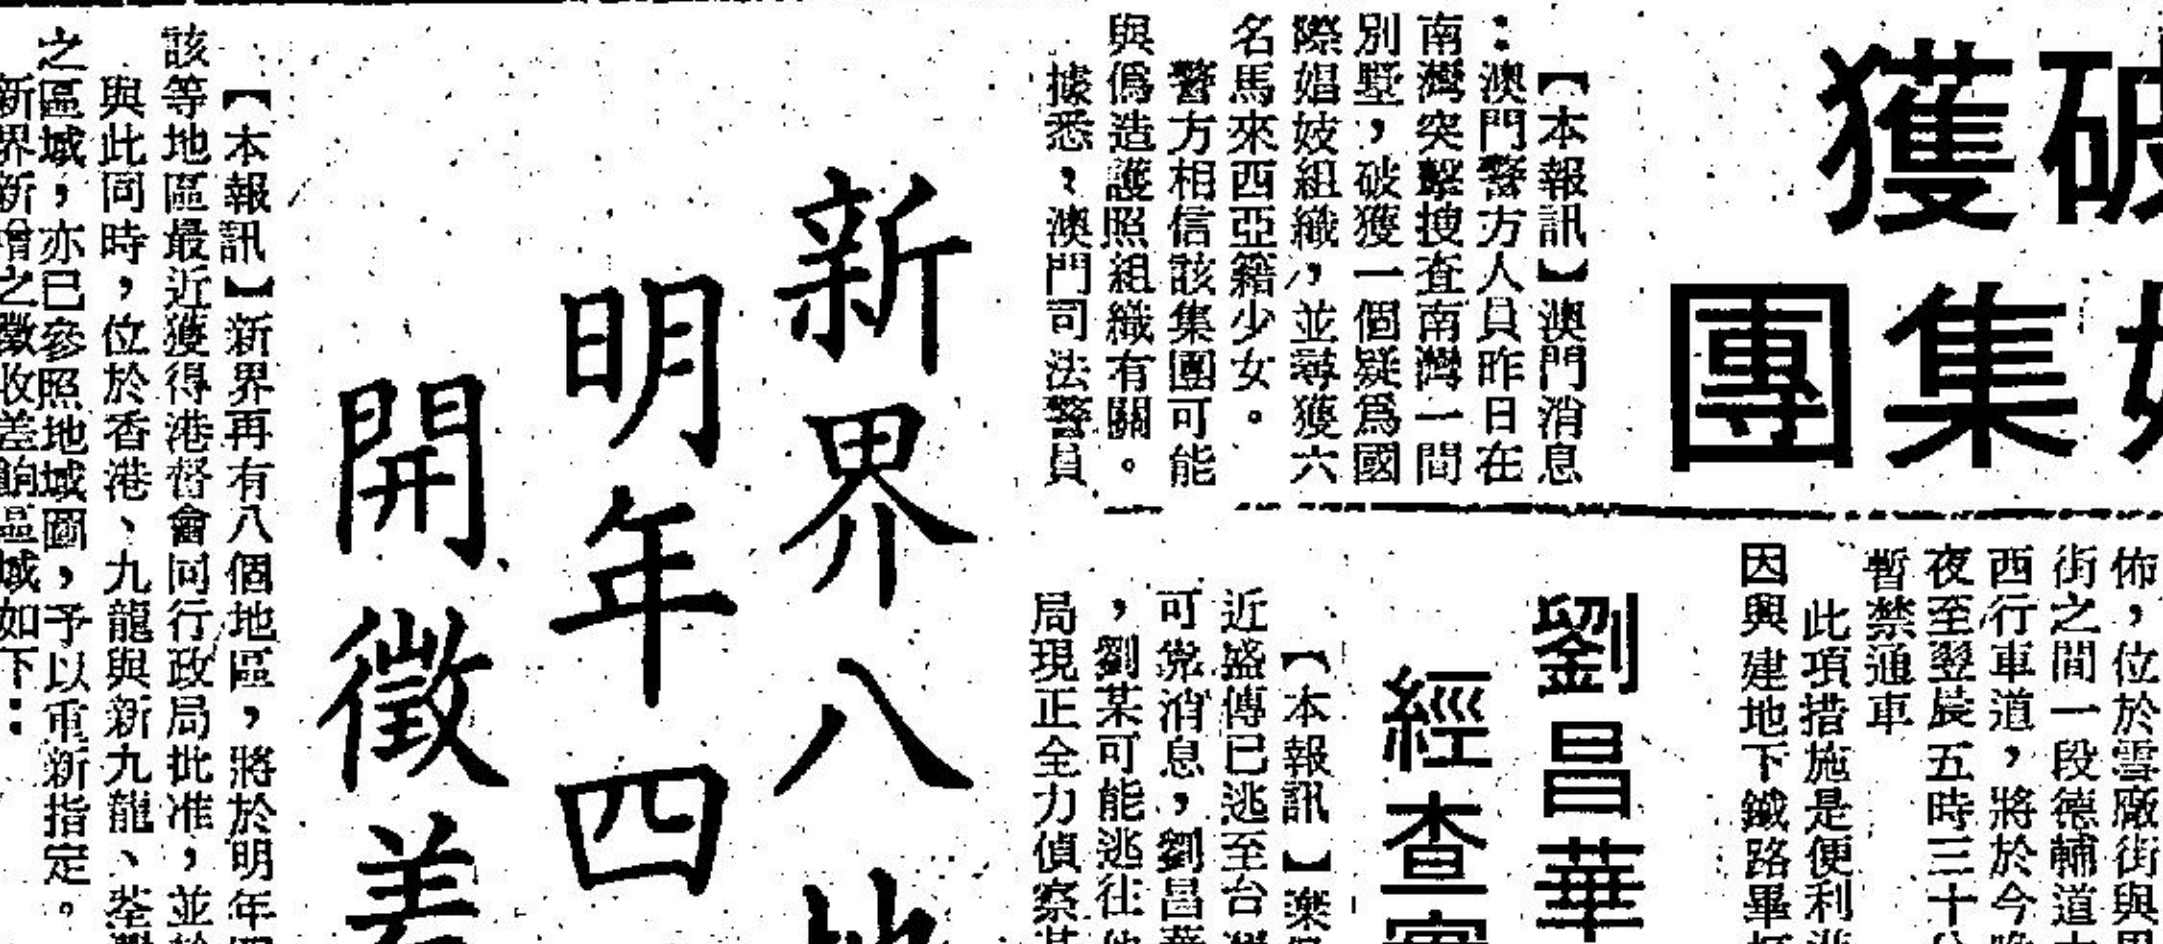 破獲
集團
【本報訊】澳門消息
：澳門警方人員昨日在
南灣突擊搜查南灣一間
別墅，破獲一個疑爲國
際娼妓組織，並尋獲六
名馬來西亞籍少女。
警方相信該集團可能
與偽造護照組織有關。
據悉，澳門司法警員
佈，位於雪廠街與畢
街之間一段德輔道
西行車道，將於今晚
夜至翌晨五時三十分
暫禁通車
此項措施是便利
因興建地下鐵路畢打
劉昌華
經查
【本報訊】樂
近盛傳已逃至台灣
可靠消息，劉昌華
，劉某可能逃往他
局現正全力偵察其
新界八地
明年四
開徵差
【本報訊】新界再有八個地區，將於明年四
該等地區最近獲得港督會同行政局批准，並於
與此同時，位於香港、九龍與新九龍、荃灣
之區域，亦已參照地域圖，予以重新指定。
新界新增之徵收差餉區域如下：